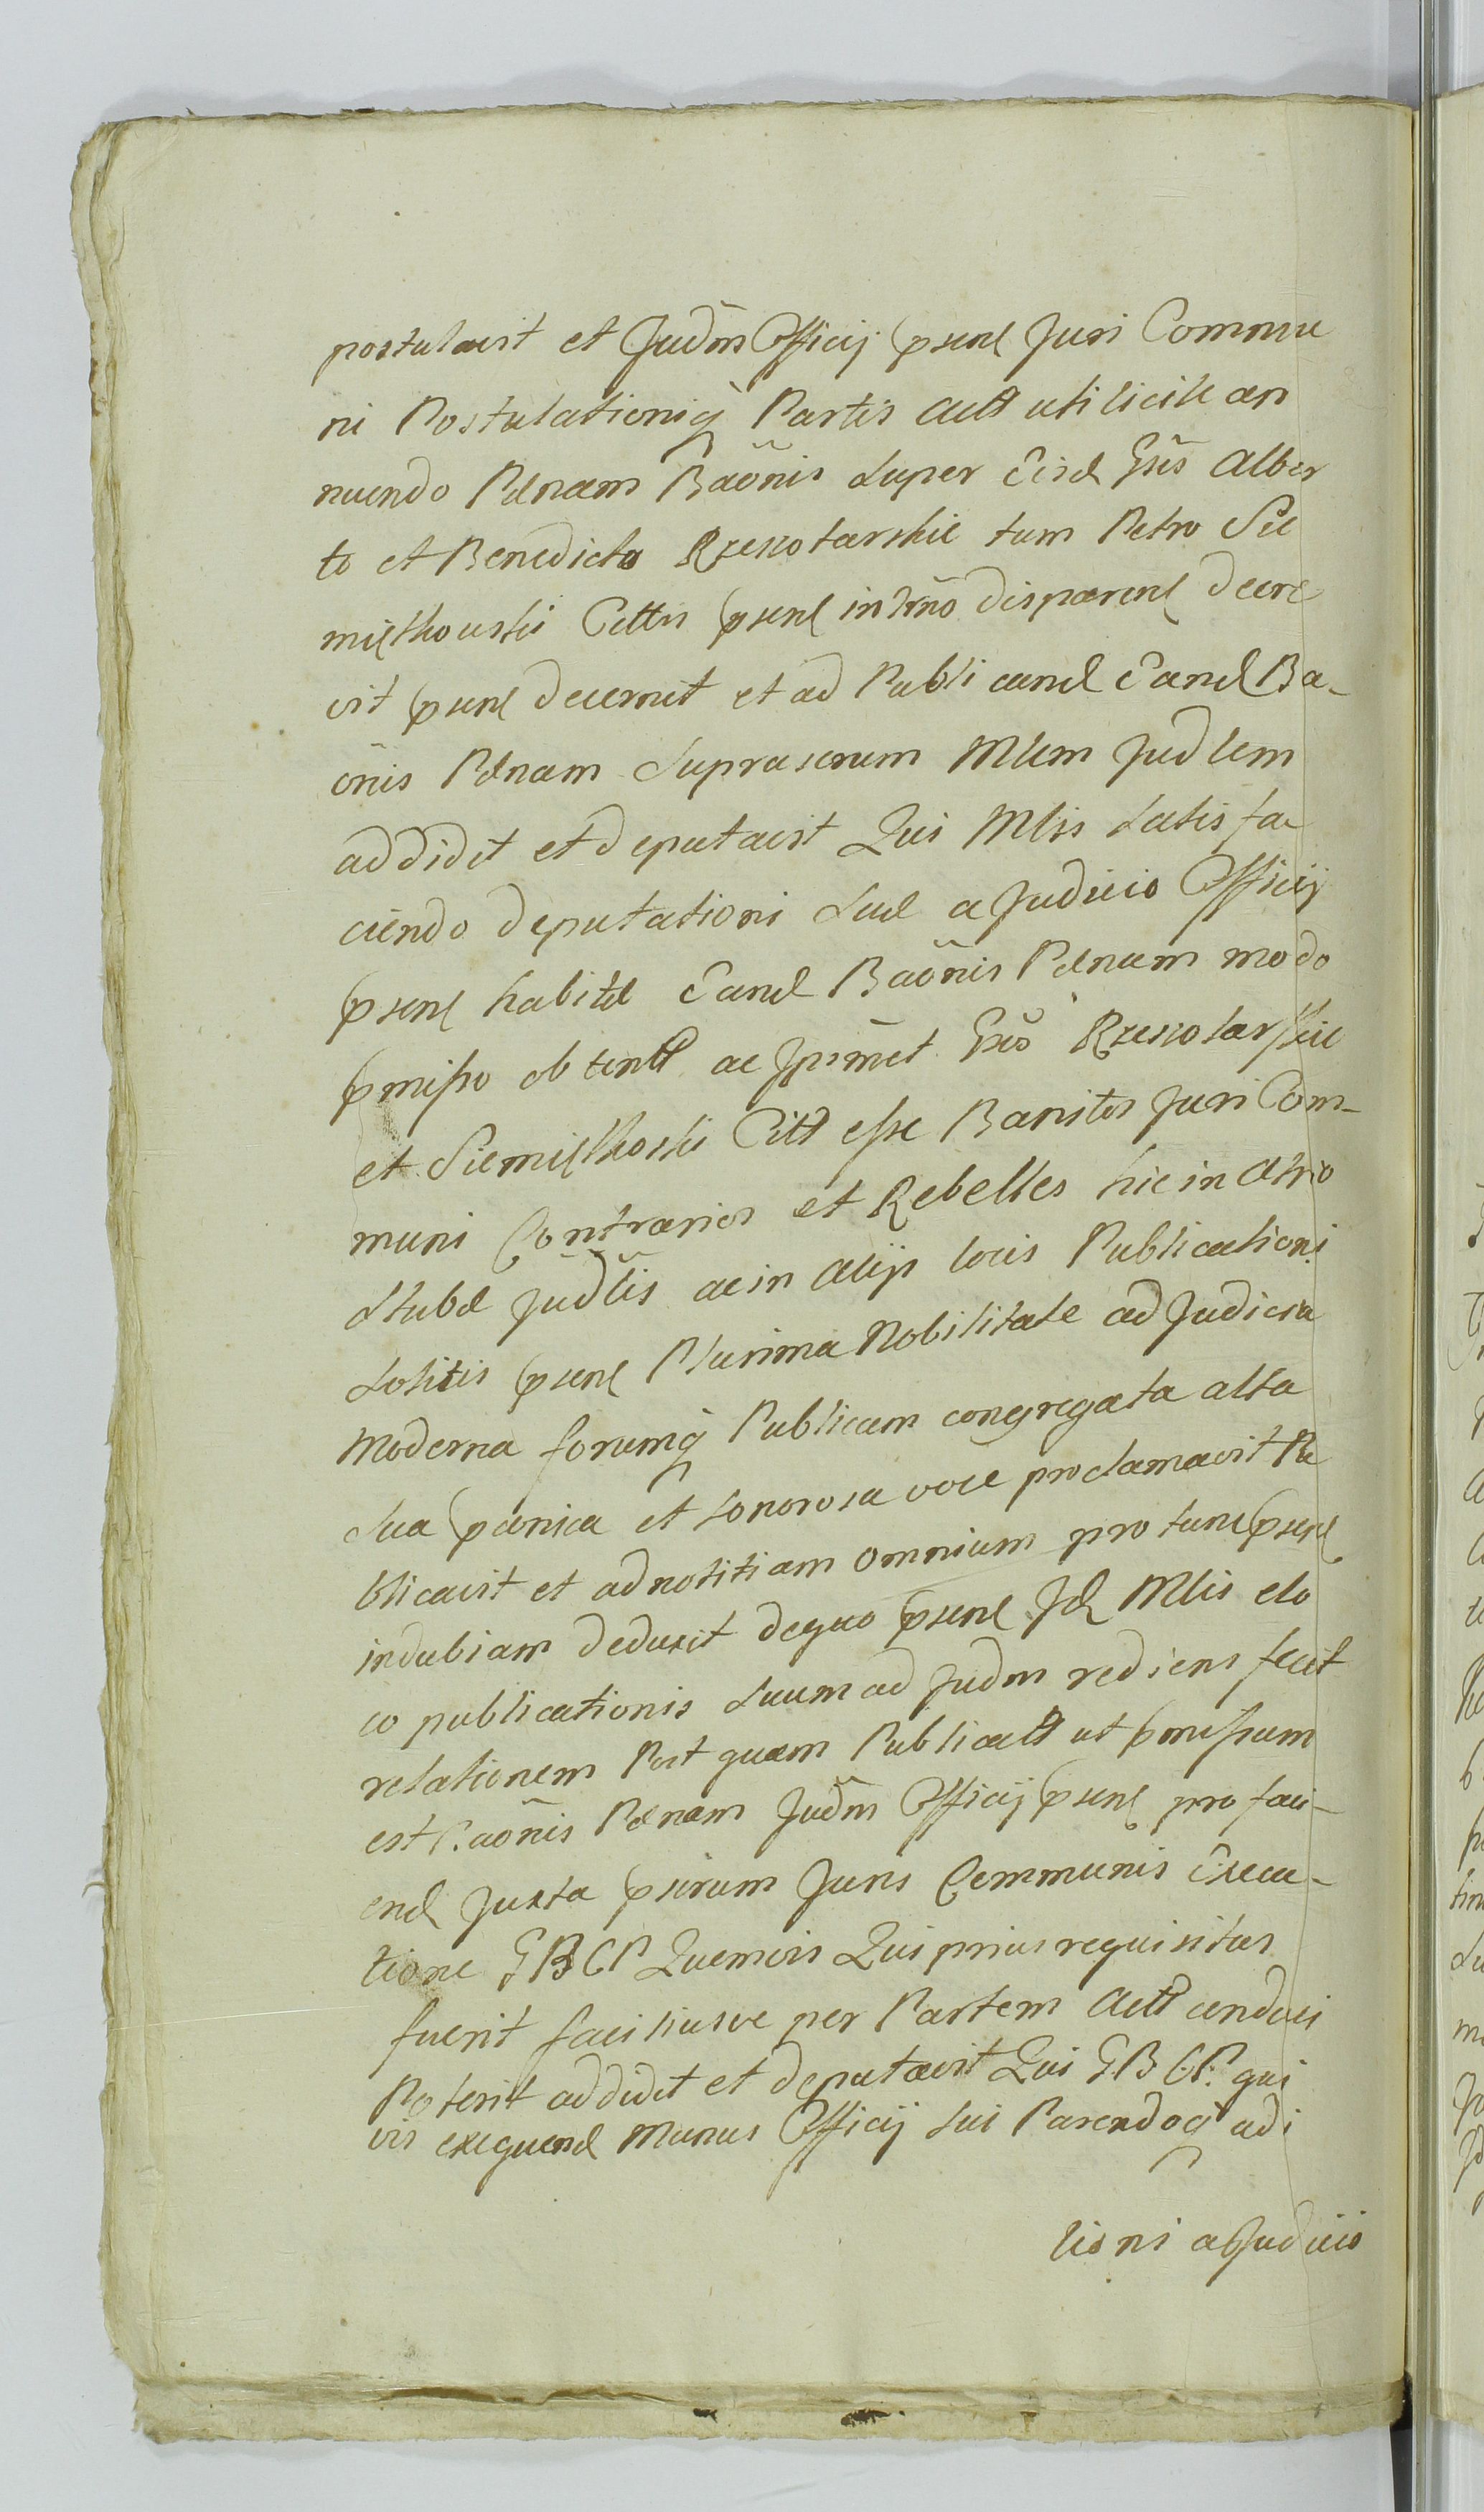 postulavit et Judm̃ Officij psenꝭ Juri Commu
ni Postulationiq̃ Partis Actt uti licite an
nuendo Pœnam Baõnis super Eisd Gsis Alber
to et Benedicto Rzeszotarskie tum Petro Sie
miętkowski Cittis psenꝭ in trño disparenꝭ decre
vit psenꝭ decernit et ad Publicand Eand Ba-
õnis Pœnam suprascrum Mlem Judlem
addidit et deputavit Qui Mlis satisfa
ciendo deputationi suæ a Judicio Officij
psenꝭ habitæ Eand Baõnis Pœnam modo
pmisso obtentt ac Ipsm̃et Gsos Rzeszotarskie
et Siemiętkoski Citt esse Banitos Juri Com-
muni Contrarios et Rebelles hic in Atrio
Stubæ Judl̃is ac in alijs locis Publicationi
solitis psenꝭ Plurima Nobilitate ad Judicia
Moderna forumq̃ Publicum congregata alta
sua panica et sonorosa voce proclamavit Pu
blicavit et ad notitiam omnium pro tunc psenꝭ
indubiam deduxit de quo psenꝭ Id Mlis e lo
co publicationis suum ad Judm rediens fecit
relationem Post quam Publicatt ut pmissum
est Baõnis Pœnam Judm̃ Officij psenꝭ pro faci-
end Juxta pscrum Juris Communis Execu-
tione GBCP Quemvis Qui prius requisitus
fuerit faciliusve per Partem Actt conduci
Poterit addidit et deputavit Qui GBCP. qui
vis exequend Munus Officij sui Parendoq̃ adi
tioni a Judicio